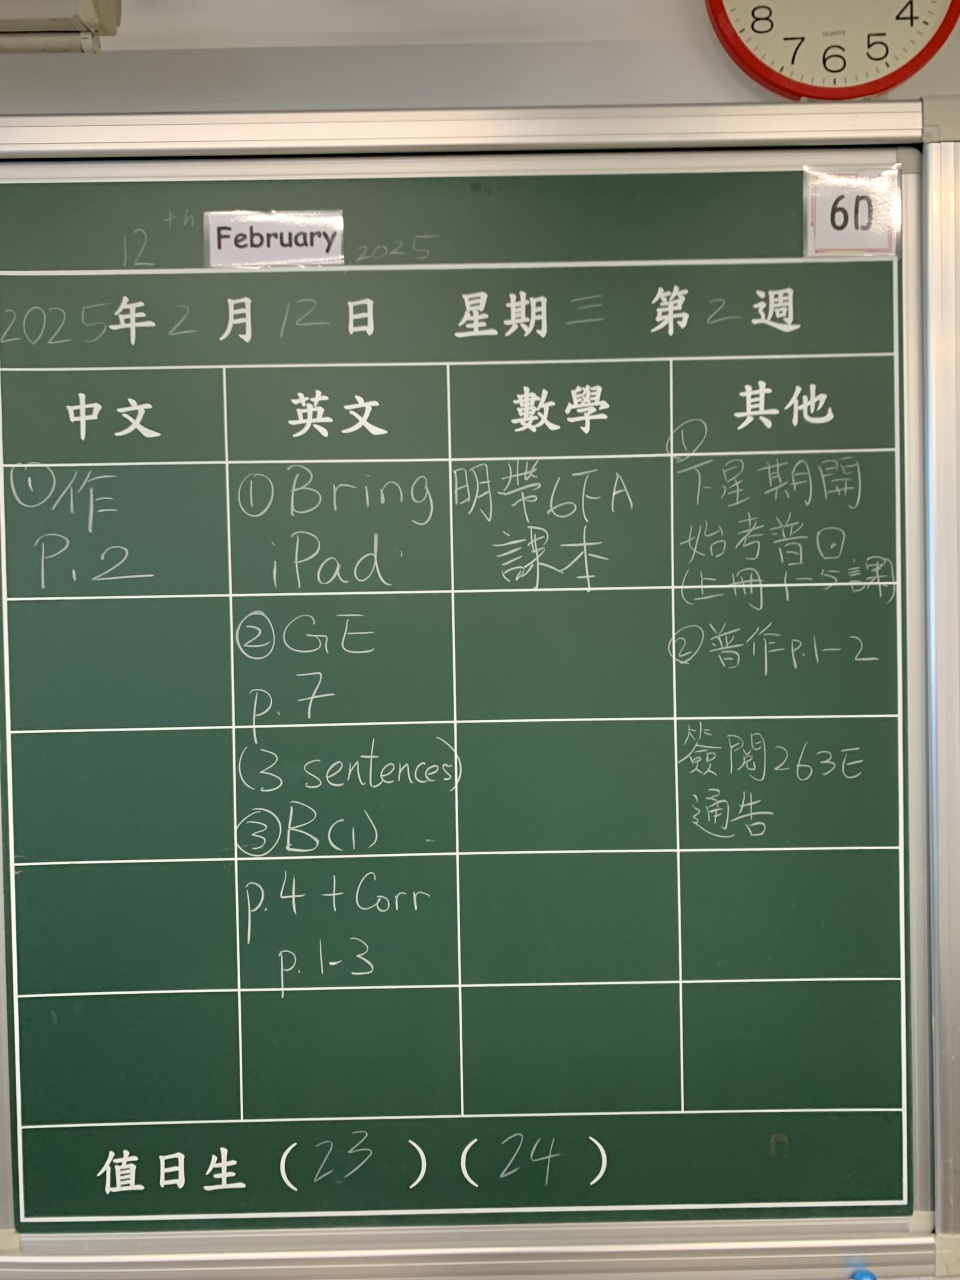 8 7 6 5 4
QUARTZ
6D
12th February 2025
2025年2月12日 星期三 第2週
中文 英文 數學 其他
①作
P.2
①Bring
iPad
②GE
p.7
(3 sentences)
③B(1)
p.4 + Corr
p.1-3
明帶6FA
課本
①
下星期開
始考普口
(上冊 1-5課)
②普作p.1-2
簽閱263E
通告
值日生 (23) (24)